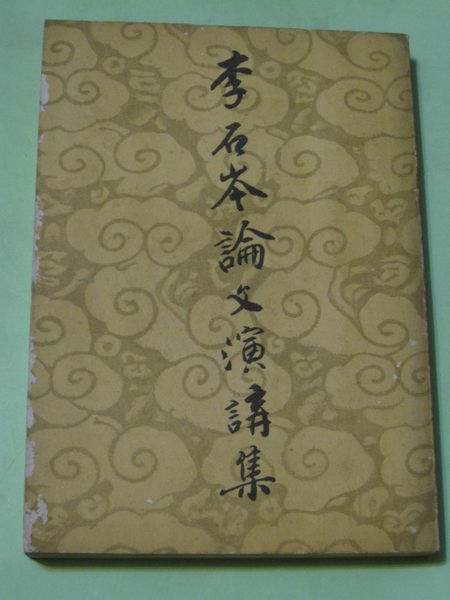 李石岑論文演講集